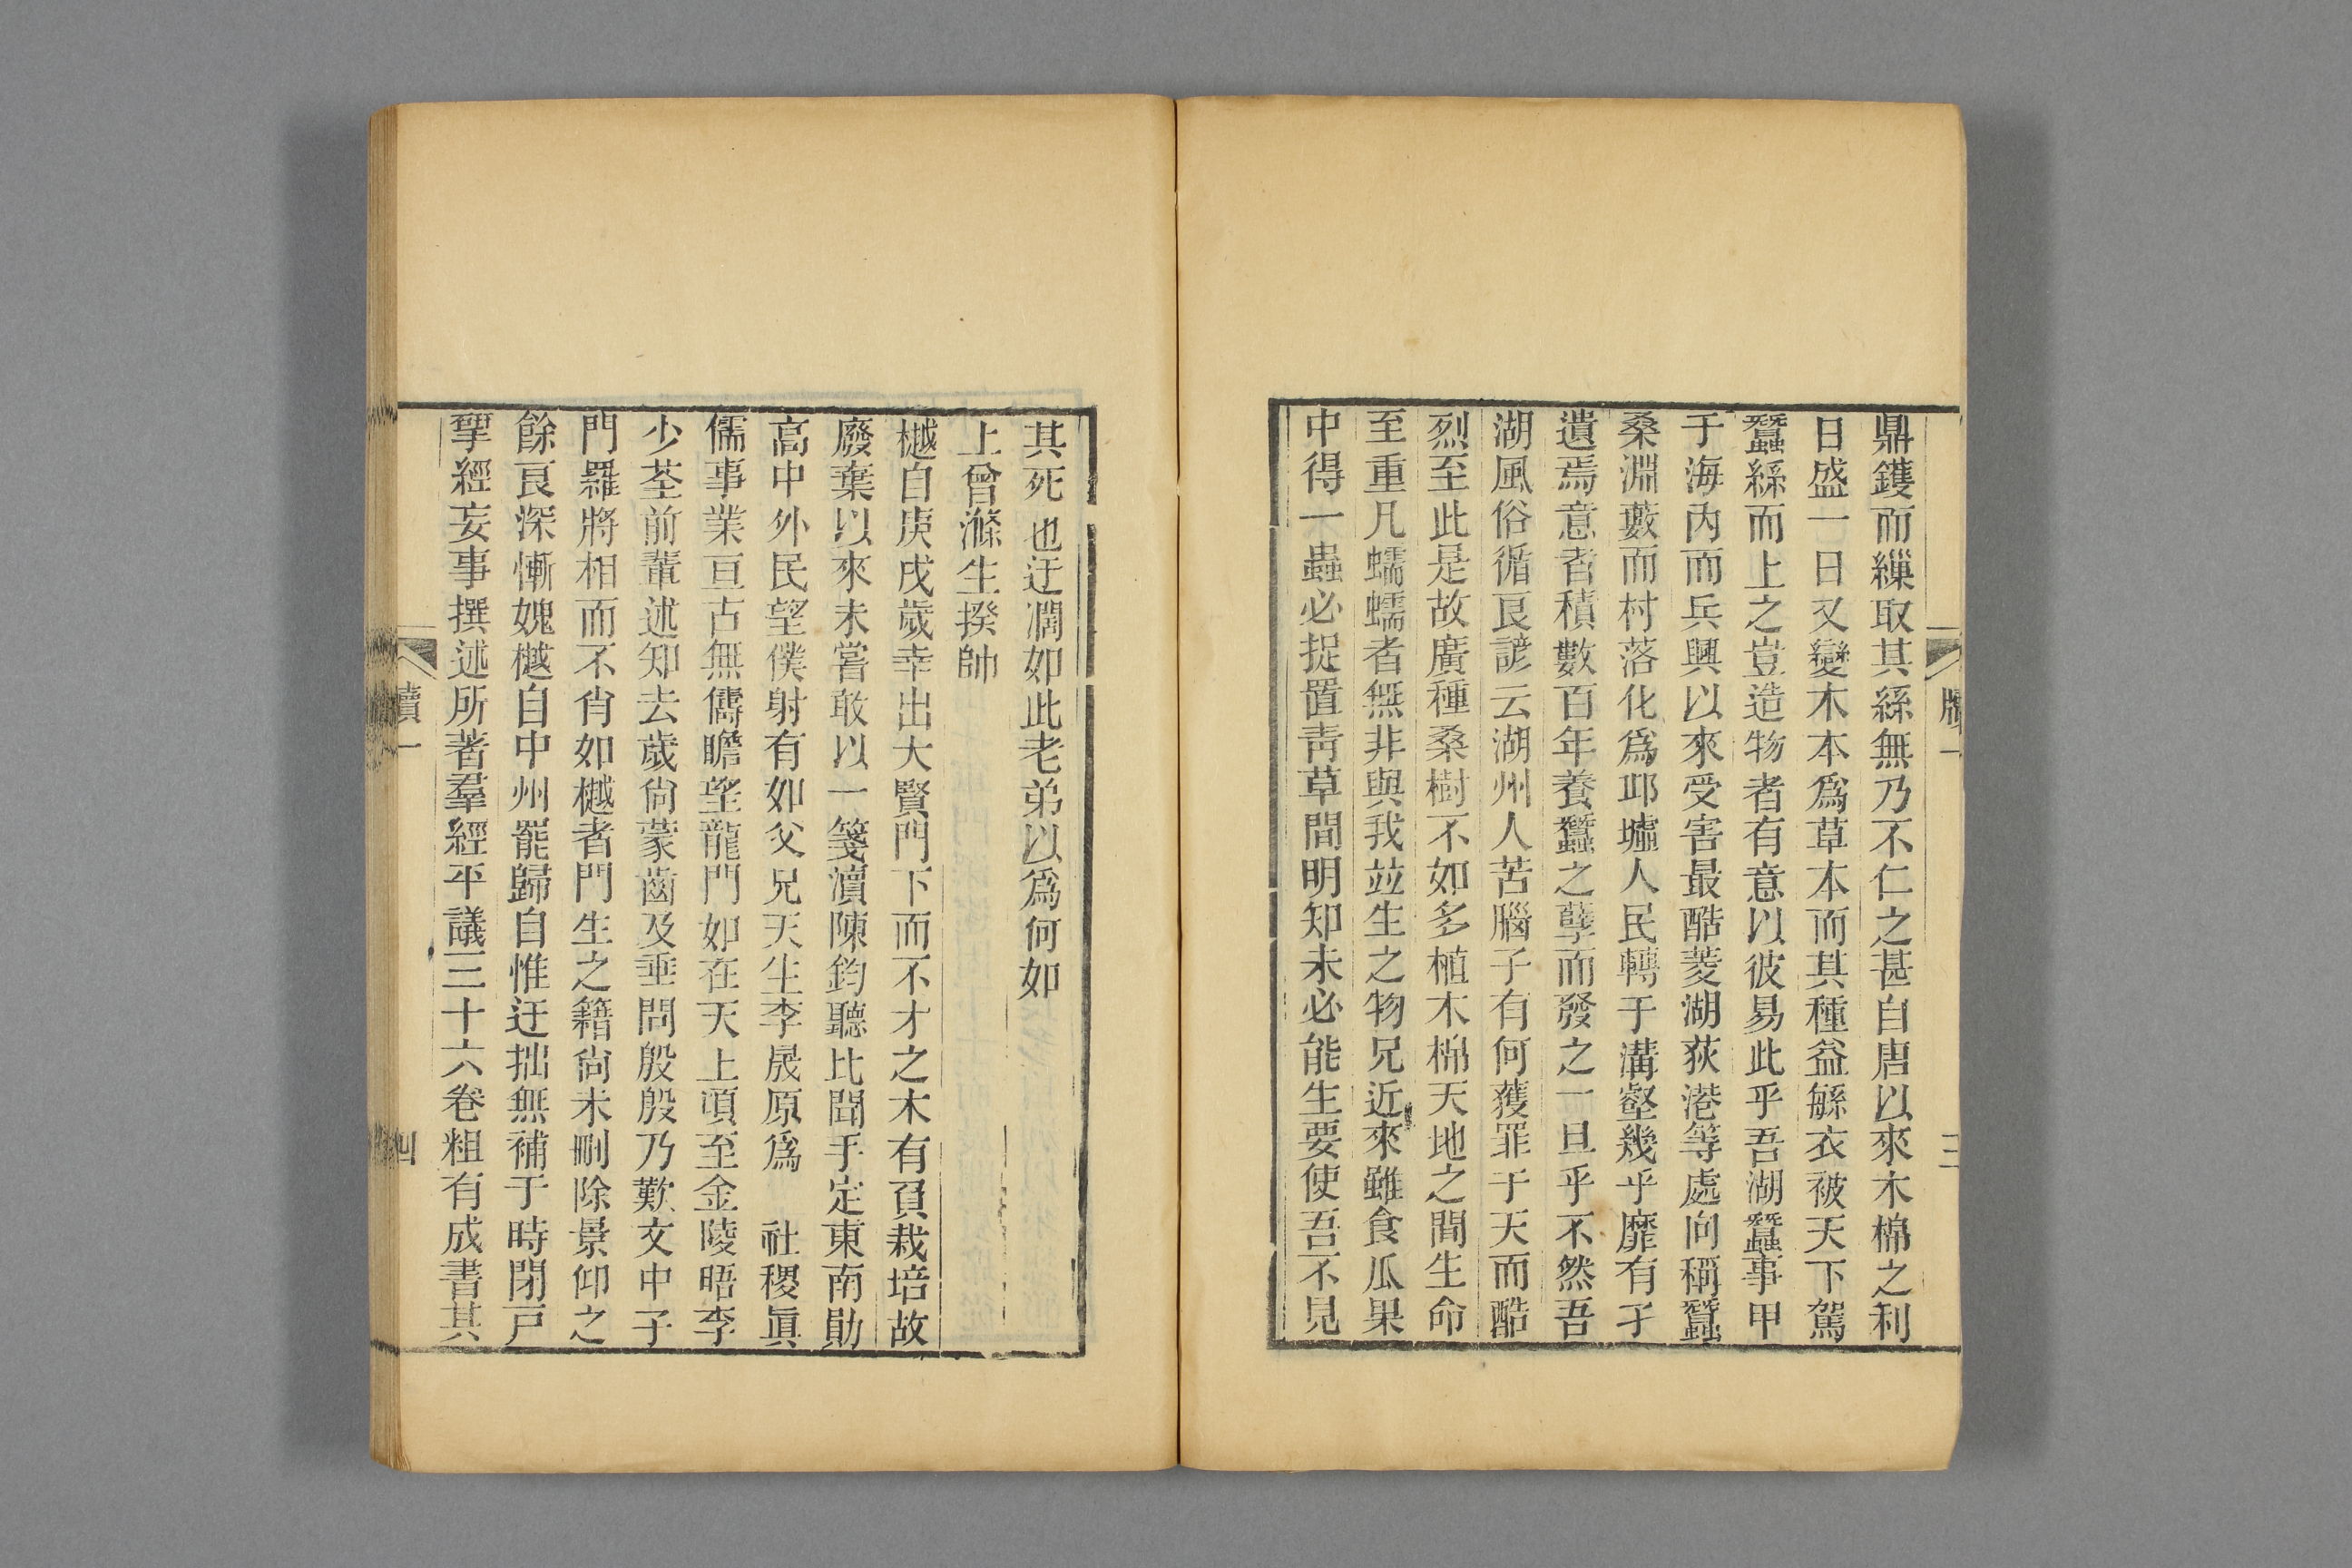 鼎鑊而繅取其絲無乃不仁之甚自唐以來木棉之利
日盛一日又變木本爲草本而其種益緐衣被天下駕
蠶絲而上之豈造物者有意以彼易此乎吾湖蠶事甲
于海內而兵興以來受害最酷菱湖荻港等處向稱蠶
桑淵藪而村落化爲邱墟人民轉于溝壑幾乎靡有孑
遺焉意者積數百年養蠶之孽而發之一旦乎不然吾
湖風俗循良諺云湖州人苦腦子有何獲罪于天而酷
烈至此是故廣種桑樹不如多植木棉天地之間生命
至重凡蠕蠕者無非與我竝生之物兄近來雖食瓜果
中得一蟲必捉置靑草間明知未必能生要使吾不見
三
其死也迂濶如此老弟以爲何如
上曾滌生揆帥
樾自庚戌歲幸出大賢門下而不才之木有負栽培故
廢棄以來未嘗敢以一箋瀆陳鈞聽比聞手定東南勛
高中外民望僕射有如父兄天生李晟原爲 社稷眞
儒事業亘古無儔瞻望龍門如在天上頃至金陵晤李
少荃前輩述知去歲尙蒙齒及垂問殷殷乃歎文中子
門羅將相而不肖如樾者門生之籍尙未刪除景仰之
餘良深慚媿樾自中州罷歸自惟迂拙無補于時閉戸
揅經妄事撰述所著羣經平議三十六卷粗有成書其
牘一
四